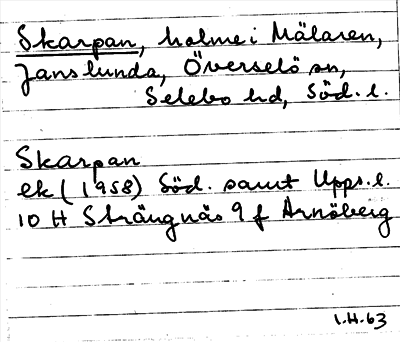 Skarpan, holme i Mälaren,
Janslunda, Överselö sn,
Selebo hd, Söd. l.
Skarpan
ek (1958) Söd. samt Upps. l.
10 H Strängnäs 9 f Arnöberg
I.H.63